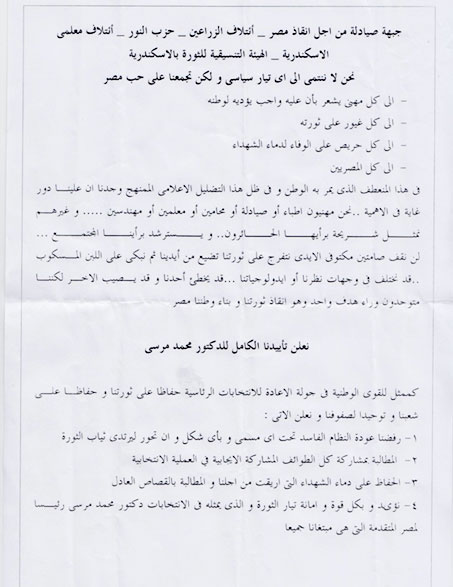 جبهة صيادلة من اجل انقاذ مصر _ أئتلاف الزراعين _ حزب النور _ أئتلاف معلمى
الاسكندرية _ الهيئة التنسيقية للثورة بالاسكندرية
نحن لا ننتمى الى اى تيار سياسى و لكن تجمعنا على حب مصر
- الى كل مهنى يشعر بأن عليه واجب يؤديه لوطنه
- الى كل غيور على ثورته
- الى كل حريص على الوفاء لدماء الشهداء
- الى كل المصريين
فى هذا المنعطف الذى يمر به الوطن و فى ظل هذا التضليل الاعلامى الممنهج وجدنا ان علينا دور
غاية فى الاهمية ..نحن مهنيون اطباء أو صيادلة أو محامين أو معلمين أو مهندسين ..... و غيرهم
نمثل شريحة برأيها الحائرون.. و يسترشد برأينا المجتمع ...
لن نقف صامتين مكتوفى الايدى نتفرج على ثورتنا تضيع من أيدينا ثم نبكى على اللبن المسكوب
..قد نختلف فى وجهات نظرنا أو ايدولوجياتنا ...قد يخطئ أحدنا و قد يصيب الاخر لكننا
متوحدون وراء هدف واحد وهو انقاذ ثورتنا و بناء وطننا مصر
نعلن تأييدنا الكامل للدكتور محمد مرسى
كممثل للقوى الوطنية فى جولة الاعادة للانتخابات الرئاسية حفاظا على ثورتنا و حفاظا على
شعبنا و توحيدا لصفوفنا و نعلن الاتى :
١- رفضنا عودة النظام الفاسد تحت اى مسمى و بأى شكل و ان تحور ليرتدى ثياب الثورة
٢- المطالبة بمشاركة كل الطوائف المشاركة الايجابية في العملية الانتخابية
٣- الحفاظ على دماء الشهداء التى اريقت من اجلنا و المطالبة بالقصاص العادل
٤- نؤيد و بكل قوة و امانة تيار الثورة و الذى يمثله فى الانتخابات دكتور محمد مرسى رئيسا
لمصر المتقدمة التى هى مبتغانا جميعا